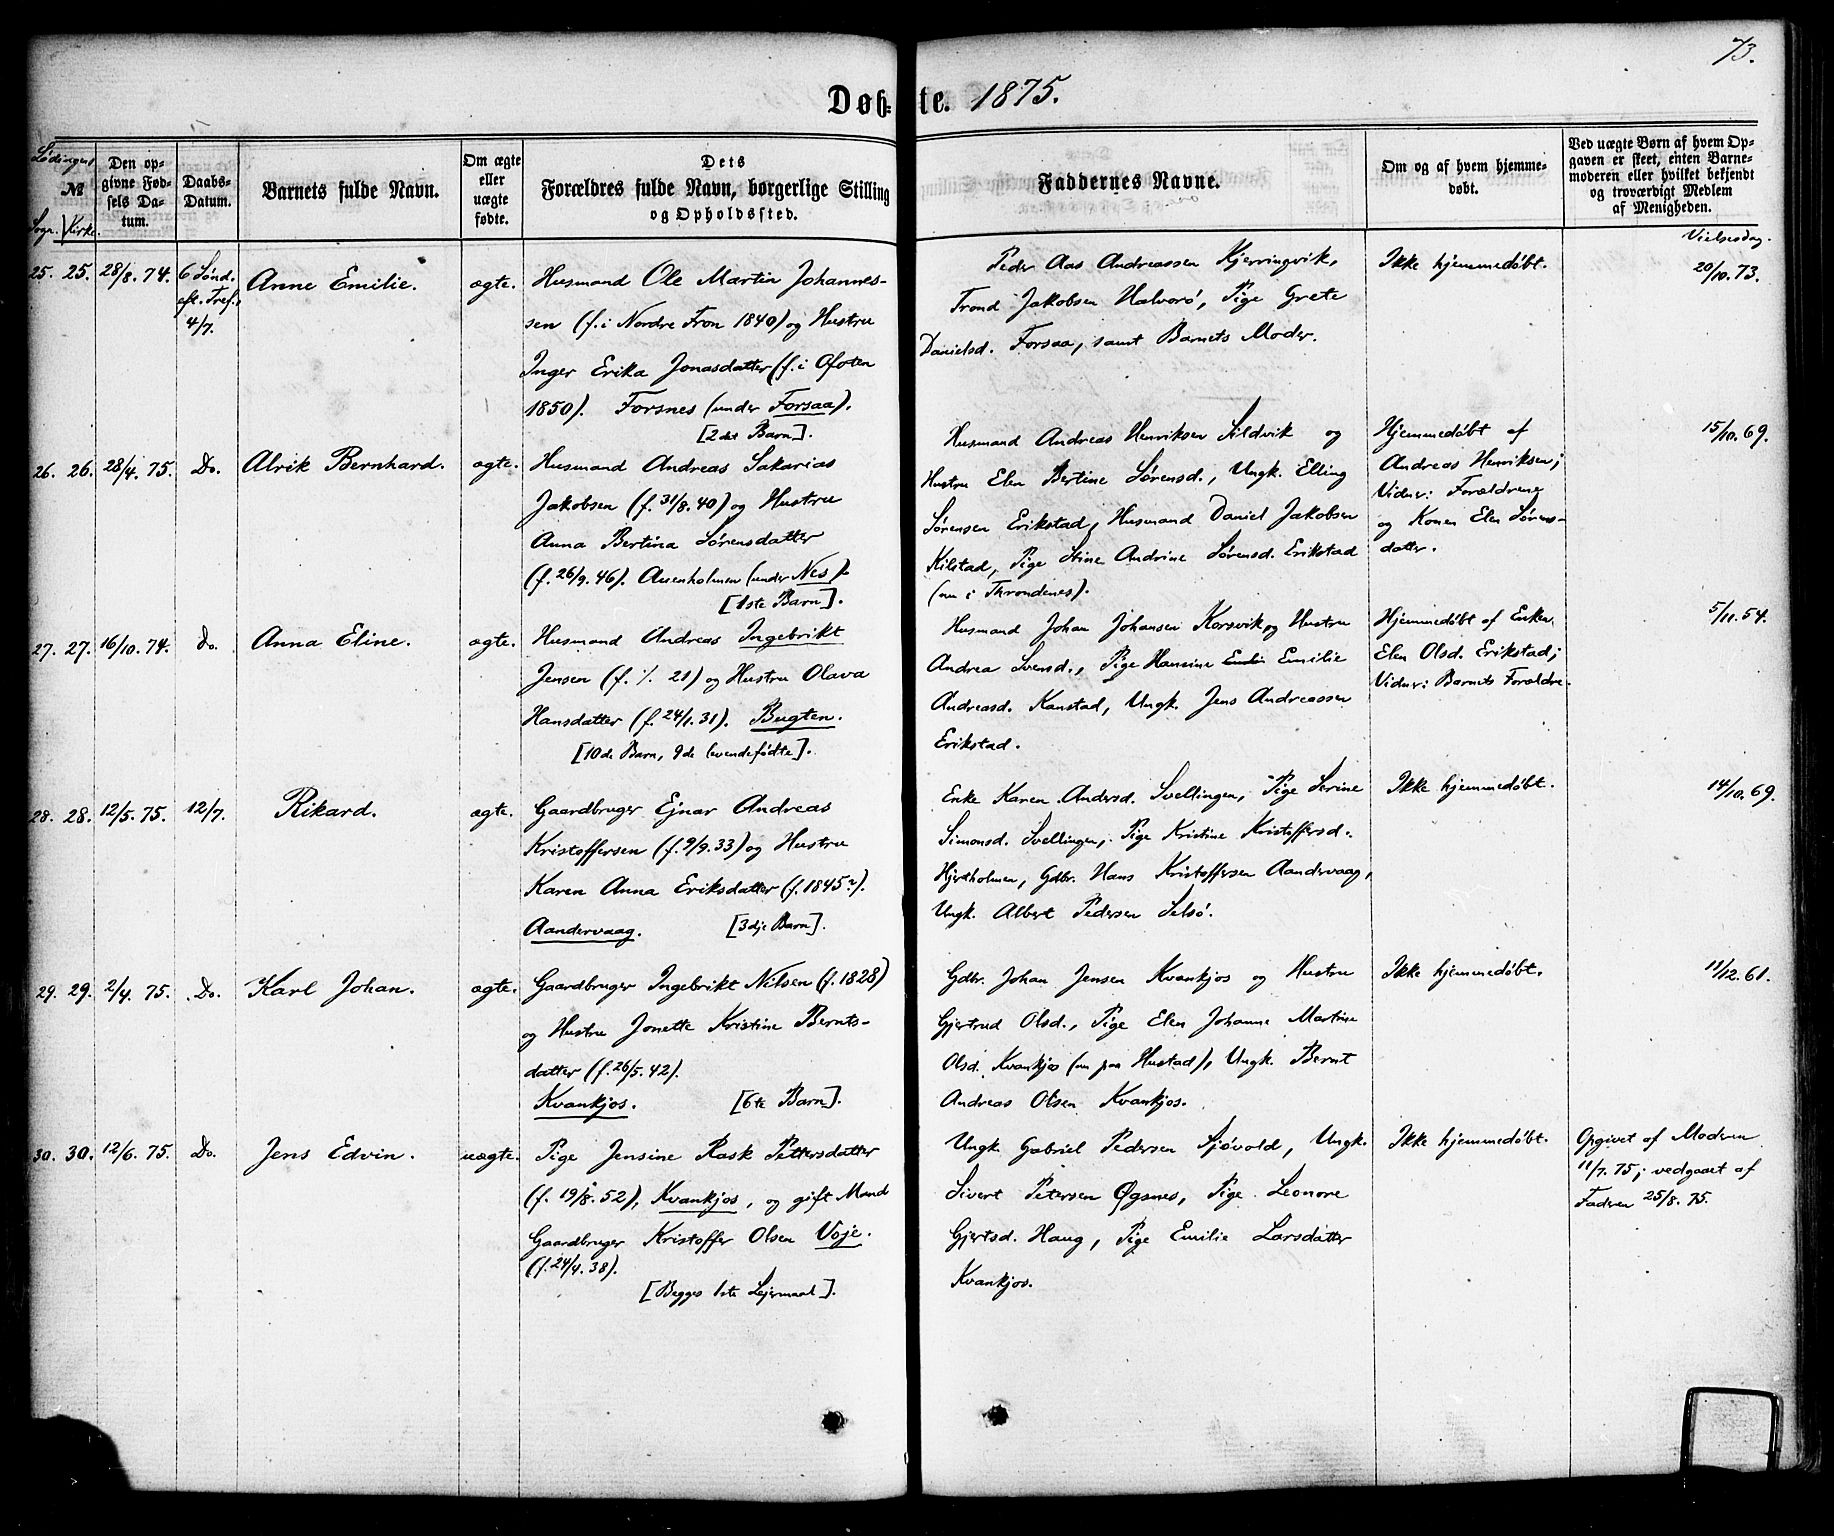 73.
Døb-te. 1875.
Lødingens
№
Sogn. Kirke.
Den op-
givne Fød-
sels Da-
tum.
Daabs-
Datum.
Barnets fulde Navn.
Om ægte
eller
uægte
fødte.
Dets
Forældres fulde Navn, borgerlige Stilling
og Opholdssted.
Faddernes Navne.
Om og af hvem hjemme-
døbt.
Ved uægte Børn af hvem Op-
gaven er skeet, enten Barne-
moderen eller hvilket bekjendt
og troværdigt Medlem
af Menigheden.
Vielsesdag.
25. 25. 28/8. 74. 6 Sønd.
eft. Tref.
4/7.
Anne Emilie.
ægte.
Husmand Ole Martin Johannes-
sen (f. i Nordre Fron 1840) og Hustru
Inger Erika Jonasdatter (f. i Ofoten
1850). Forsnes (under Forsaa).
[2det Barn].
Peder Aas Andreassen Kjerringvik,
Trond Jakobsen Halvorø, Pige Grete
Danielsd. Forsaa, samt Barnets Moder.
Ikke hjemmedøbt.
20/10. 73.
26. 26. 28/4. 75. Do.
Alrik Bernhard.
ægte.
Husmand Andreas Sakarias
Jakobsen (f. 31/8. 40) og Hustru
Anna Bertina Sørensdatter
(f. 26/9. 46). Auenholmen (under Nes).
[1ste Barn].
Husmand Andreas Henriksen Sildvik og
Hustru Elen Bertine Sørensd., Ungk. Elling
Sørensen Erikstad, Husmand Daniel Jakobsen
Kilstad, Pige Stine Andrine Sørensd. Erikstad
(nu i Throndenes).
Hjemmedøbt af
Andreas Henriksen;
Vidner: Forældrene
og Konen Elen Sørens-
datter.
15/10. 69.
27. 27. 16/10. 74. Do.
Anna Eline.
ægte.
Husmand Andreas Ingebrikt
Jensen (f. %. 21) og Hustru Olava
Hansdatter (f. 24/1. 31). Bugten.
[10de Barn, 9de levendefødte].
Husmand Johan Johansen Korsvik og Hustru
Andrea Svensd., Pige Hansine Emilie
Andreasd. Kanstad, Ungk. Jens Andreassen
Erikstad.
Hjemmedøbt af Enken
Elen Olsd. Erikstad;
Vidner: Barnets Forældre.
5/11. 54.
28. 28. 12/5. 75. 12/7.
Rikard.
ægte.
Gaardbruger Ejnar Andreas
Kristoffersen (f. 9/9. 33) og Hustru
Karen Anna Eriksdatter (f. 1845?).
Aandervaag. [3dje Barn].
Enke Karen Andersd. Svellingen, Pige Serine
Simonsd. Svellingen, Pige Kristine Kristoffersd.
Hjertholmen, Gdbr. Hans Kristoffersen Aandervaag,
Ungk. Albert Pedersen Selsø.
Ikke hjemmedøbt.
14/10. 69.
29. 29. 2/4. 75. Do.
Karl Johan.
ægte.
Gaardbruger Ingebrikt Nilsen (f. 1828)
og Hustru Jonette Kristine Bernts-
datter (f. 26/5. 42).
Kvankjos. [6te Barn].
Gdbr. Johan Jensen Kvankjos og Hustru
Gjertrud Olsd., Pige Elen Johanne Martine
Olsd. Kvankjos (nu paa Hustad), Ungk. Bernt
Andreas Olsen Kvankjos.
Ikke hjemmedøbt.
11/12. 61.
30. 30. 12/6. 75. Do.
Jens Edvin.
uægte.
Pige Jensine Rask Pettersdatter
(f. 19/8. 52), Kvankjos, og gift Mand
Gaardbruger Kristoffer Olsen Voje.
(f. 24/4. 38).
[Begges 1ste Lejermaal].
Ungk. Gabriel Pedersen Sjøvold, Ungk.
Sivert Petersen Øgsnes, Pige Leonore
Gjertsd. Haug, Pige Emilie Larsdatter
Kvankjos.
Ikke hjemmedøbt.
Opgivet af Moderen
11/7. 75; vedgaaet af
Faderen 25/8. 75.